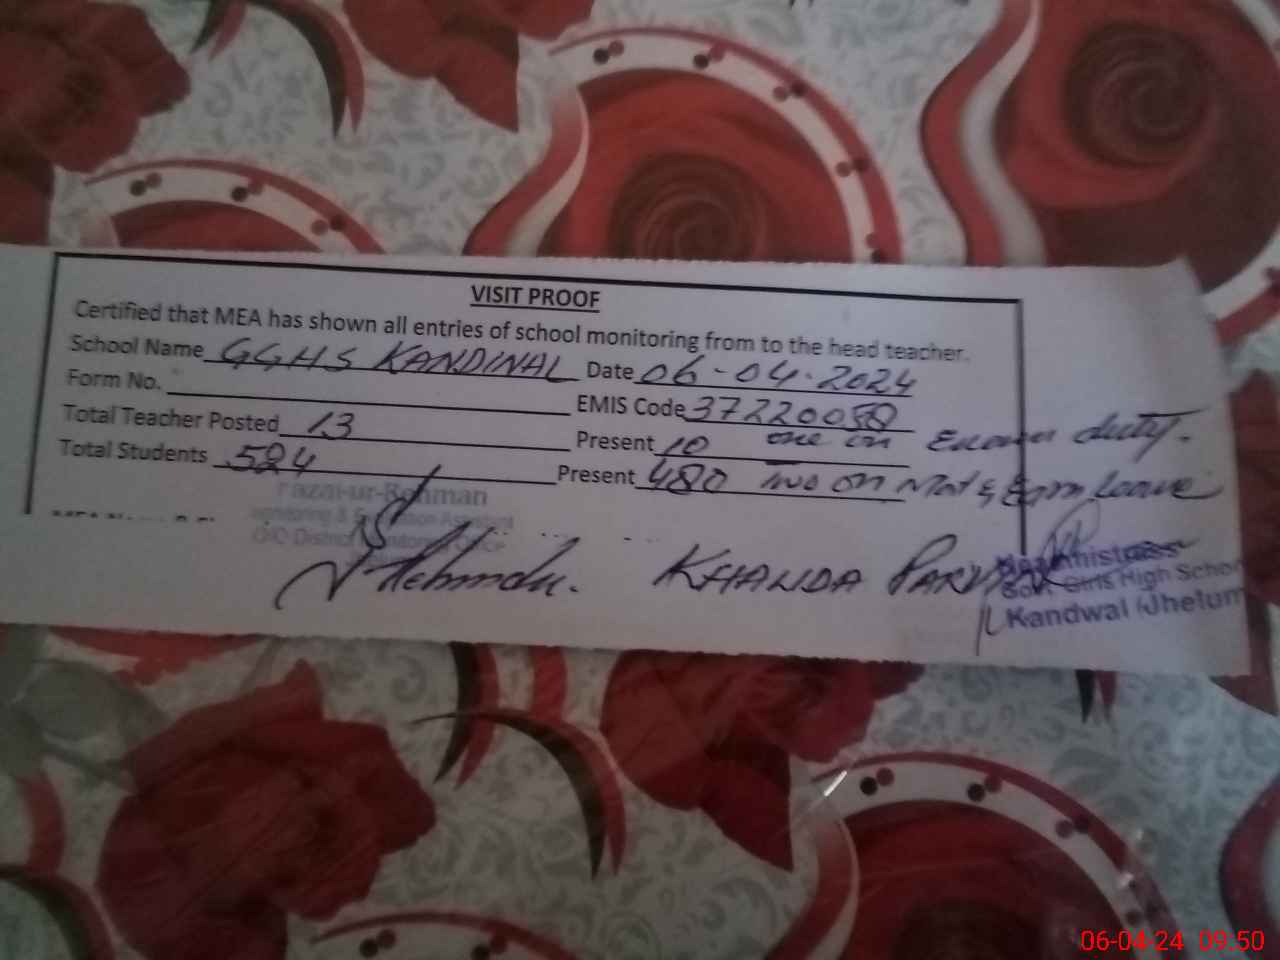 VISIT PROOF
Certified that MEA has shown all entries of school monitoring from to the head teacher.
School Name GGHS KANDINAL Date 06-04-2024
Form No. EMIS Code 37220058
Total Teacher Posted 13 Present 10 one on duty.
Total Students 524 Present 480 two on Mat & Earn leave
Fazal-ur-Rehman
Monitoring & Assistant
O/O District Monitoring Office
KHALIDA
Headmistress
Govt. Girls High School
Kandwal (Jhelum
06-04-24 09:50